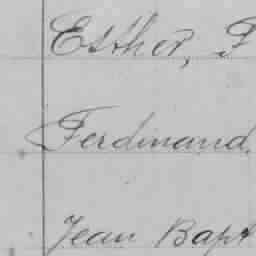 Esther, F
Ferdinand.
Jean Bapt